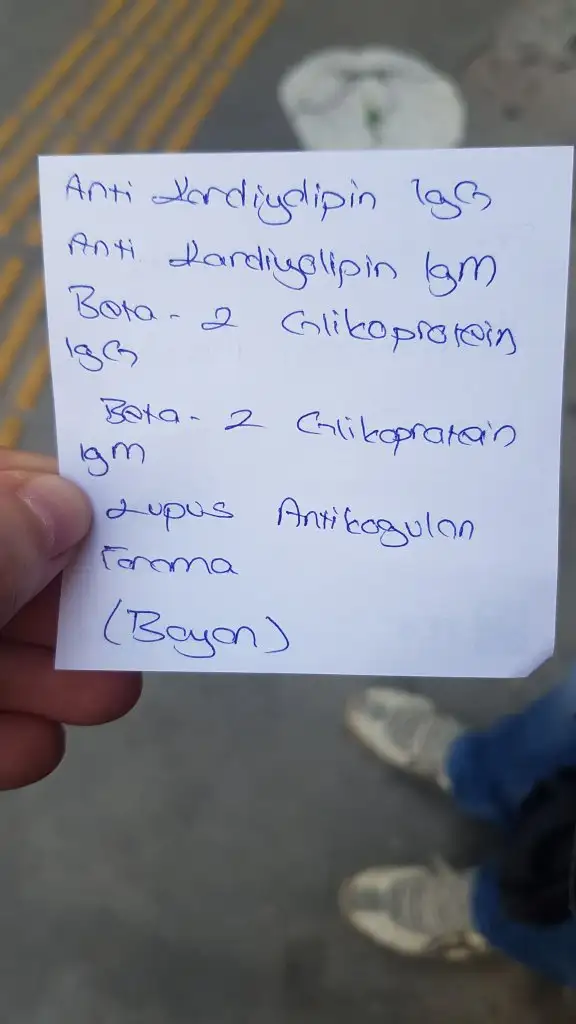 Anti Kardiyolipin IgG
Anti Kardiyolipin IgM
Beta-2 Glikoprotein
IgG
Beta-2 Glikoprotein
IgM
Lupus Antikogulan
Tarama
(Bayan)